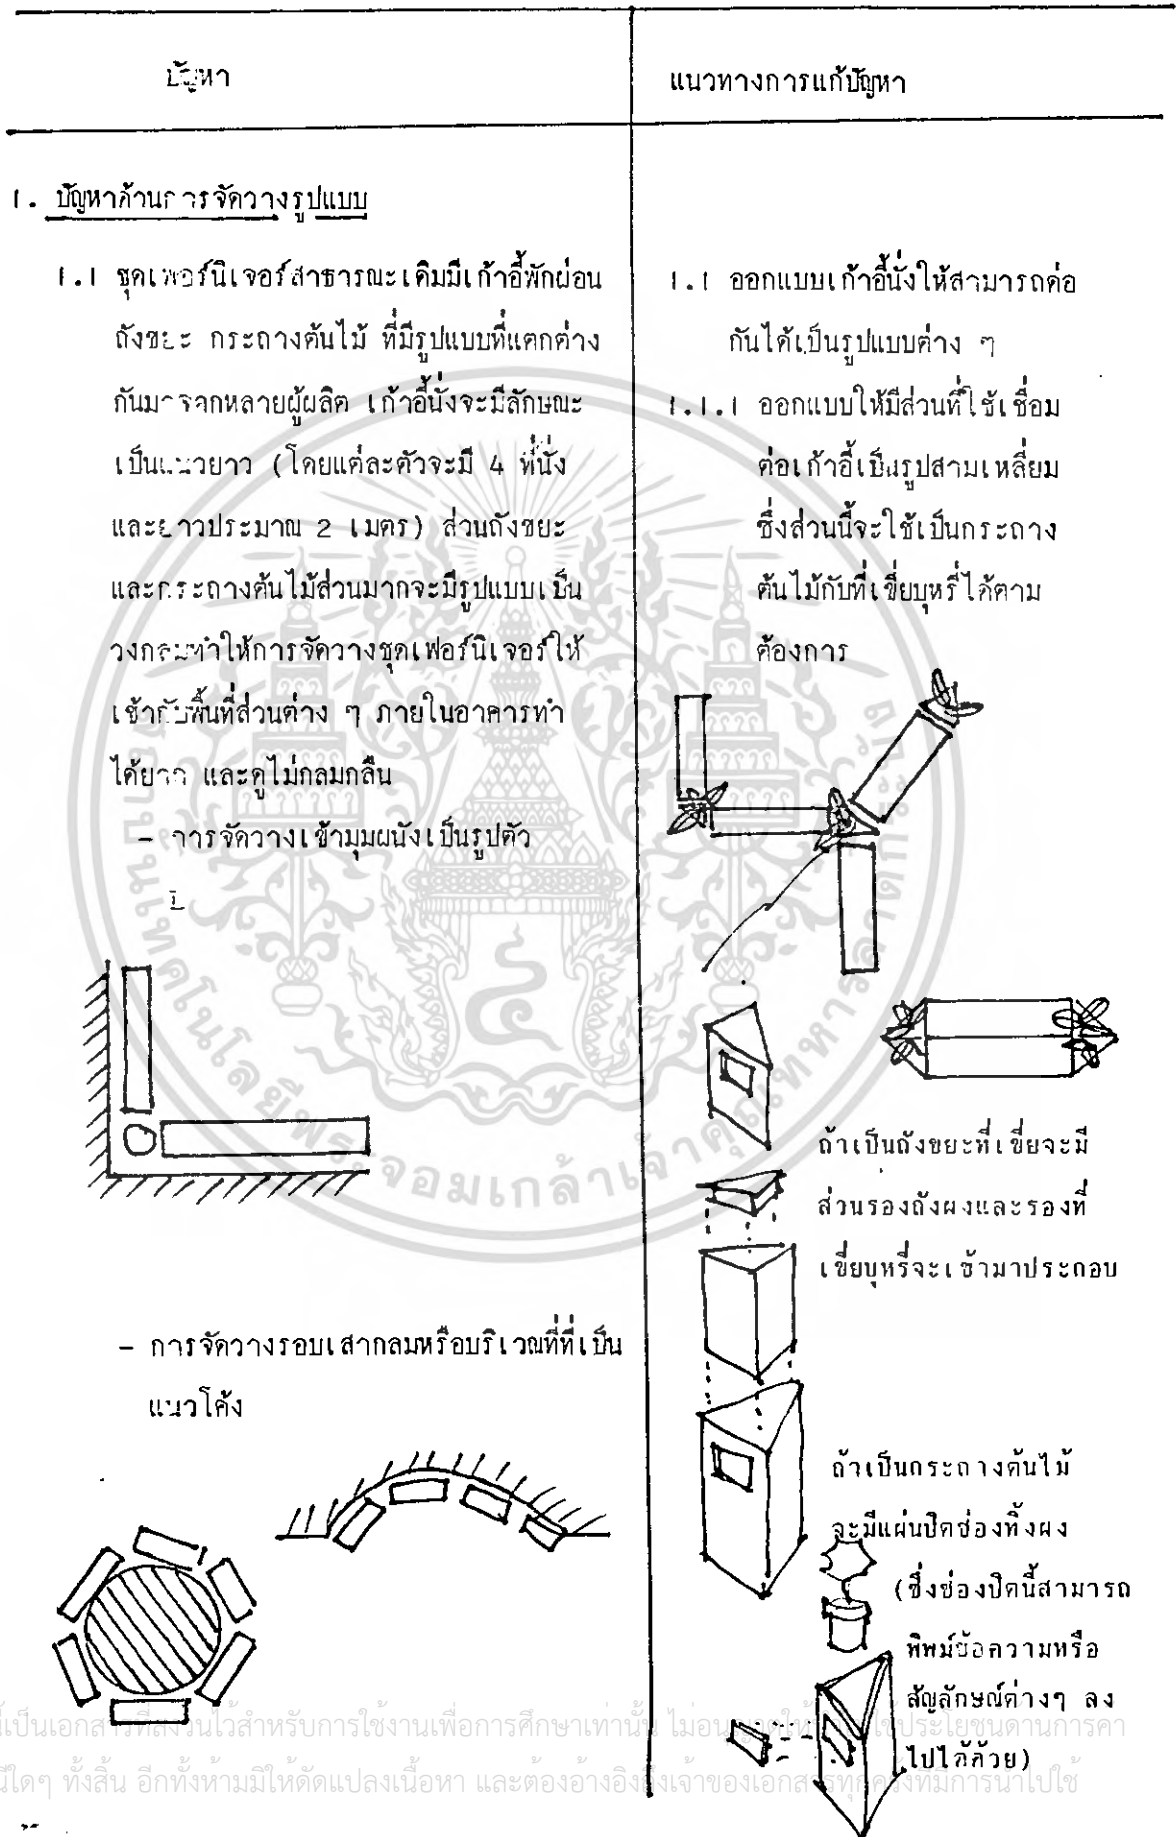 ปัญหา
แนวทางการแก้ปัญหา
1. ปัญหาด้านการจัดวางรูปแบบ
1.1 ชุดเฟอร์นิเจอร์สาธารณะเดิมมีเก้าอี้พักผ่อน
ถังขยะ กระถางต้นไม้ ที่มีรูปแบบที่แตกต่าง
กันมาจากหลายผู้ผลิต เก้าอี้นั่งจะมีลักษณะ
เป็นแนวยาว (โดยแต่ละตัวจะมี 4 ที่นั่ง
และยาวประมาณ 2 เมตร) ส่วนถังขยะ
และกระถางต้นไม้ส่วนมากจะมีรูปแบบเป็น
วงกลมทำให้การจัดวางชุดเฟอร์นิเจอร์ให้
เข้ากับพื้นที่ส่วนต่าง ๆ ภายในอาคารทำ
ได้ยาก และดูไม่กลมกลืน
- การจัดวางเข้ามุมผนังเป็นรูปตัว
L
- การจัดวางรอบเสากลมหรือบริเวณที่ที่เป็น
แนวโค้ง
1.1 ออกแบบเก้าอี้นั่งให้สามารถต่อ
กันได้เป็นรูปแบบต่าง ๆ
1.1.1 ออกแบบให้มีส่วนที่ใช้เชื่อม
ต่อเก้าอี้เป็นรูปสามเหลี่ยม
ซึ่งส่วนนี้จะใช้เป็นกระถาง
ต้นไม้กับที่เขี่ยบุหรี่ได้ตาม
ต้องการ
ถ้าเป็นถังขยะที่เขี่ยจะมี
ส่วนรองถังผงและรองที่
เขี่ยบุหรี่จะเข้ามาประกอบ
ถ้าเป็นกระถางต้นไม้
จะมีแผ่นปิดช่องทิ้งผง
(ซึ่งช่องปิดนี้สามารถ
พิมพ์ข้อความหรือ
สัญลักษณ์ต่างๆ ลง
ไปได้ด้วย)
สถาบันเทคโนโลยีพระจอมเกล้าเจ้าคุณทหารลาดกระบัง
นี้เป็นเอกสารที่สงวนไว้สำหรับการใช้งานเพื่อการศึกษาเท่านั้น ไม่อนุญาตให้ ใช้ประโยชน์ด้านการค้า
ใดๆ ทั้งสิ้น อีกทั้งห้ามมิให้ดัดแปลงเนื้อหา และต้องอ้างอิงถึงเจ้าของเอกสารทุกครั้งที่มีการนำไปใช้